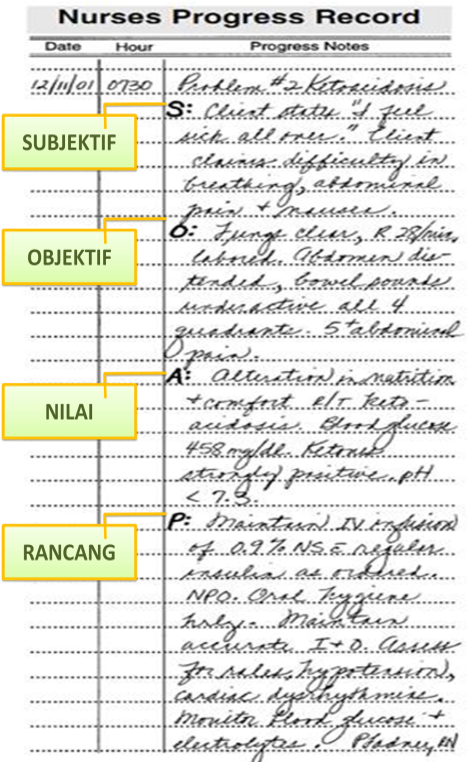 Nurses Progress Record
Date Hour Progress Notes
12/11/01 0730 Problem #2 Ketoacidosis
SUBJEKTIF
S: Client states "I feel
sick all over." Client
claims difficulty in
breathing, abdominal
pain + nausea.
OBJEKTIF
O: Lungs clear, R 28/min,
labored. Abdomen dis-
tended, bowel sounds
underactive all 4
quadrants. 5+ abdominal
pain.
NILAI
A: Alteration in nutrition
+ comfort R/T Keto-
acidosis. Blood glucose
458 mg/dl. Ketones
strongly positive. pH
< 7.3.
RANCANG
P: Maintain IV infusion
of 0.9% NS c̄ regular
insulin as ordered.
NPO. Oral hygiene
hrly. Maintain
accurate I+O. Assess
for rales, hypotension,
cardiac dysrhythmias.
Monitor blood glucose +
electrolytes. RN